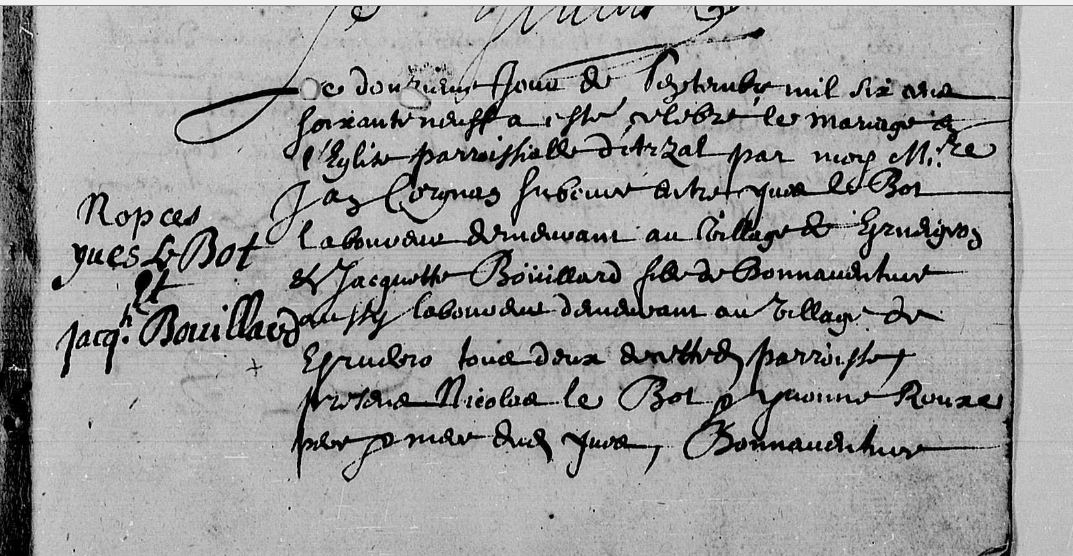 Nopces
yves Le Bot
Et
jacqte. Bouillard
Le douzieme Jour de Septembre mil six cens
soixante neuff a esté celebré le mariage a
l'Eglise parroissialle d'Arzal par moy M.re
Jan subcure entre yves le Bot
laboureur demeurant au village de
& Jacquette Boüillard fille de Bonnaventure
aussy laboureur demeurant au village de
tous deux de cette d parroisse,
presens Nicolas le Bot & yvonne Rouxe
pere & mere dud yves, Bonnaventure